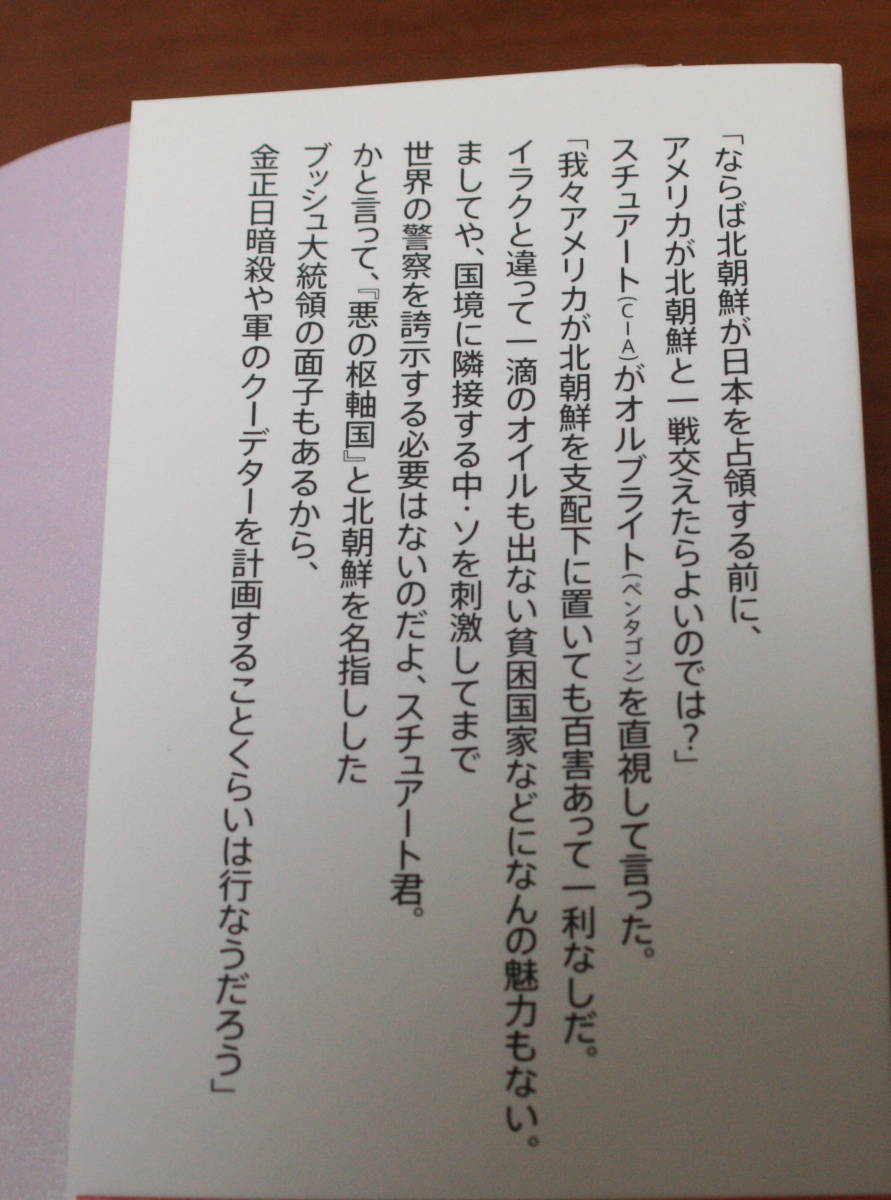 「ならば北朝鮮が日本を占領する前に、
アメリカが北朝鮮と一戦交えたらよいのでは？」
スチュアート（CIA）がオルブライト（ペンタゴン）を直視して言った。
「我々アメリカが北朝鮮を支配下に置いても百害あって一利なしだ。
イラクと違って一滴のオイルも出ない貧困国家などになんの魅力もない。
ましてや、国境に隣接する中・ソを刺激してまで
世界の警察を誇示する必要はないのだよ、スチュアート君。
かと言って、『悪の枢軸国』と北朝鮮を名指しした
ブッシュ大統領の面子もあるから、
金正日暗殺や軍のクーデターを計画することくらいは行なうだろう」